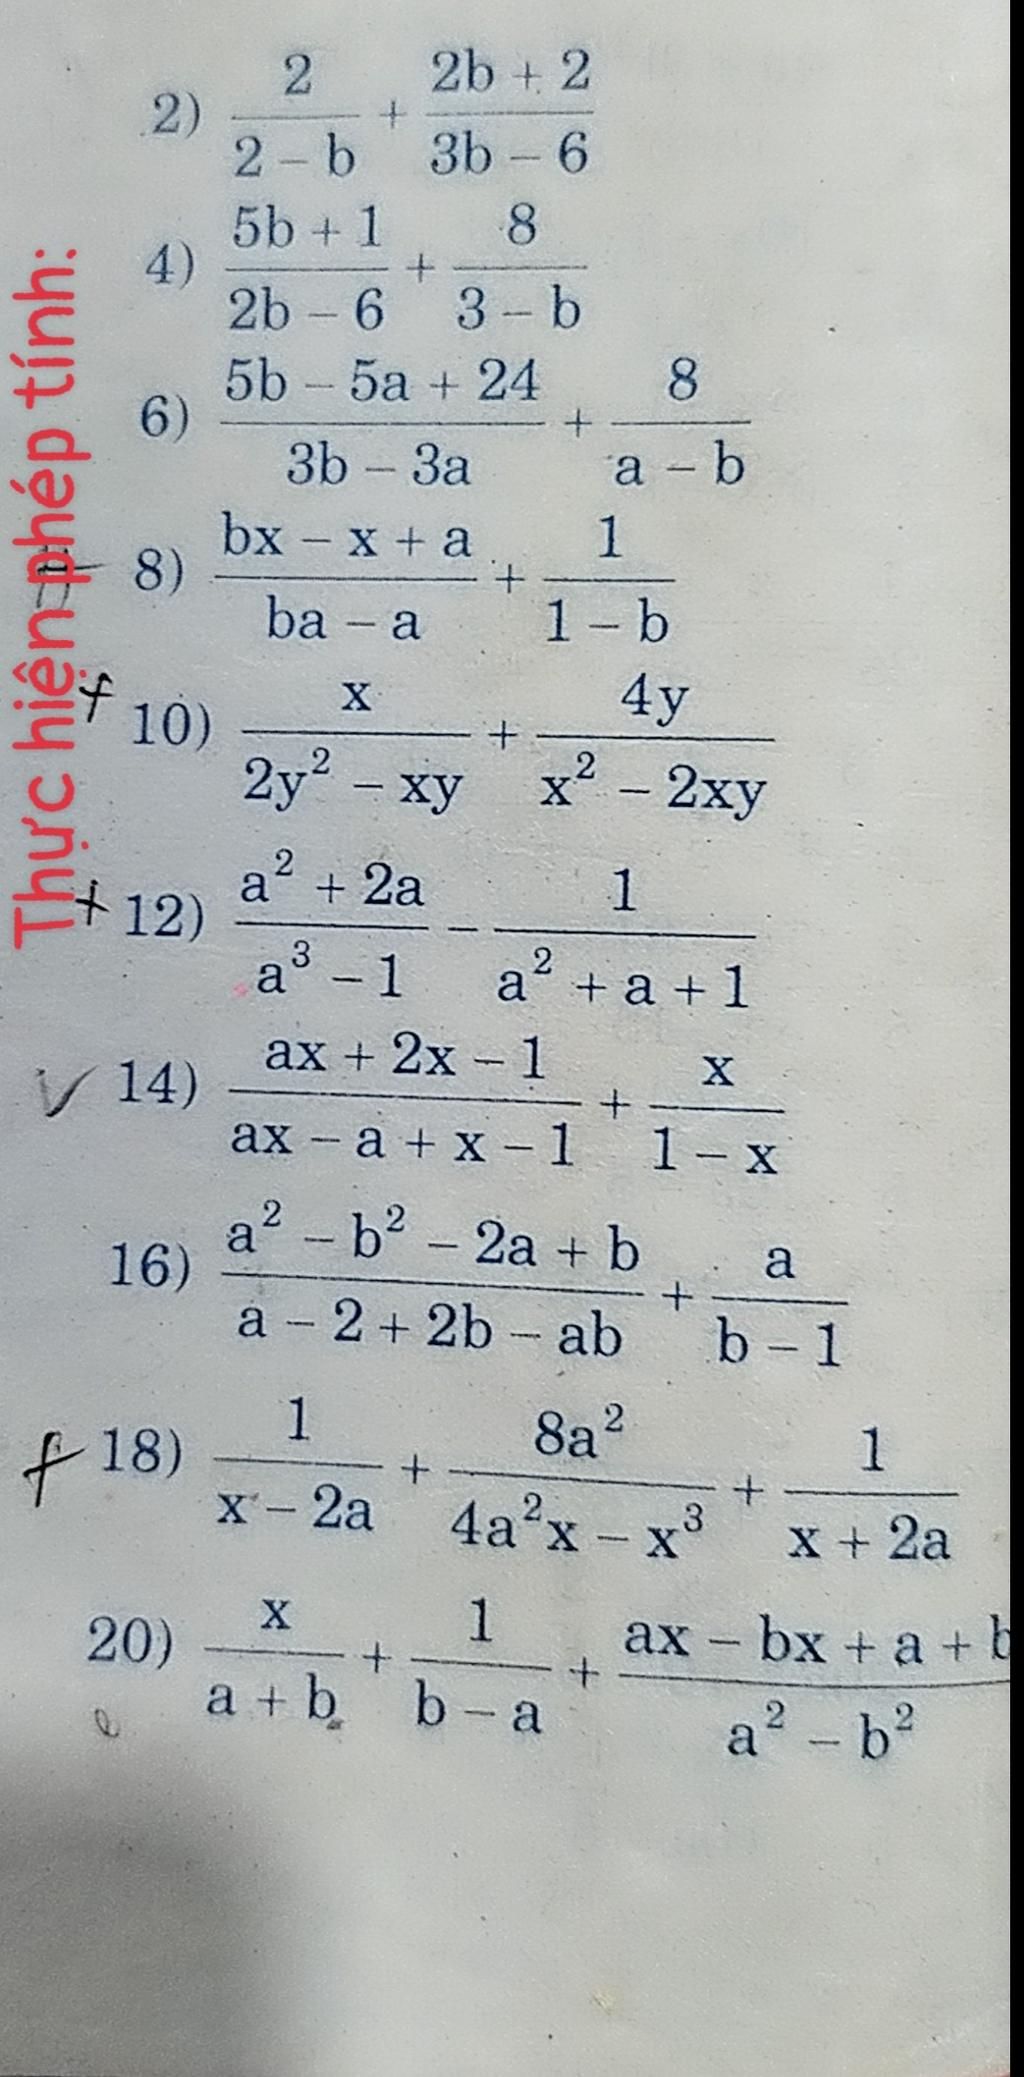 Thực hiện phép tính:
2) \frac{2}{2 - b} + \frac{2b + 2}{3b - 6}
4) \frac{5b + 1}{2b - 6} + \frac{8}{3 - b}
6) \frac{5b - 5a + 24}{3b - 3a} + \frac{8}{a - b}
8) \frac{bx - x + a}{ba - a} + \frac{1}{1 - b}
10) \frac{x}{2y^2 - xy} + \frac{4y}{x^2 - 2xy}
12) \frac{a^2 + 2a}{a^3 - 1} - \frac{1}{a^2 + a + 1}
14) \frac{ax + 2x - 1}{ax - a + x - 1} + \frac{x}{1 - x}
16) \frac{a^2 - b^2 - 2a + b}{a - 2 + 2b - ab} + \frac{a}{b - 1}
18) \frac{1}{x - 2a} + \frac{8a^2}{4a^2x - x^3} + \frac{1}{x + 2a}
20) \frac{x}{a + b} + \frac{1}{b - a} + \frac{ax - bx + a + b}{a^2 - b^2}